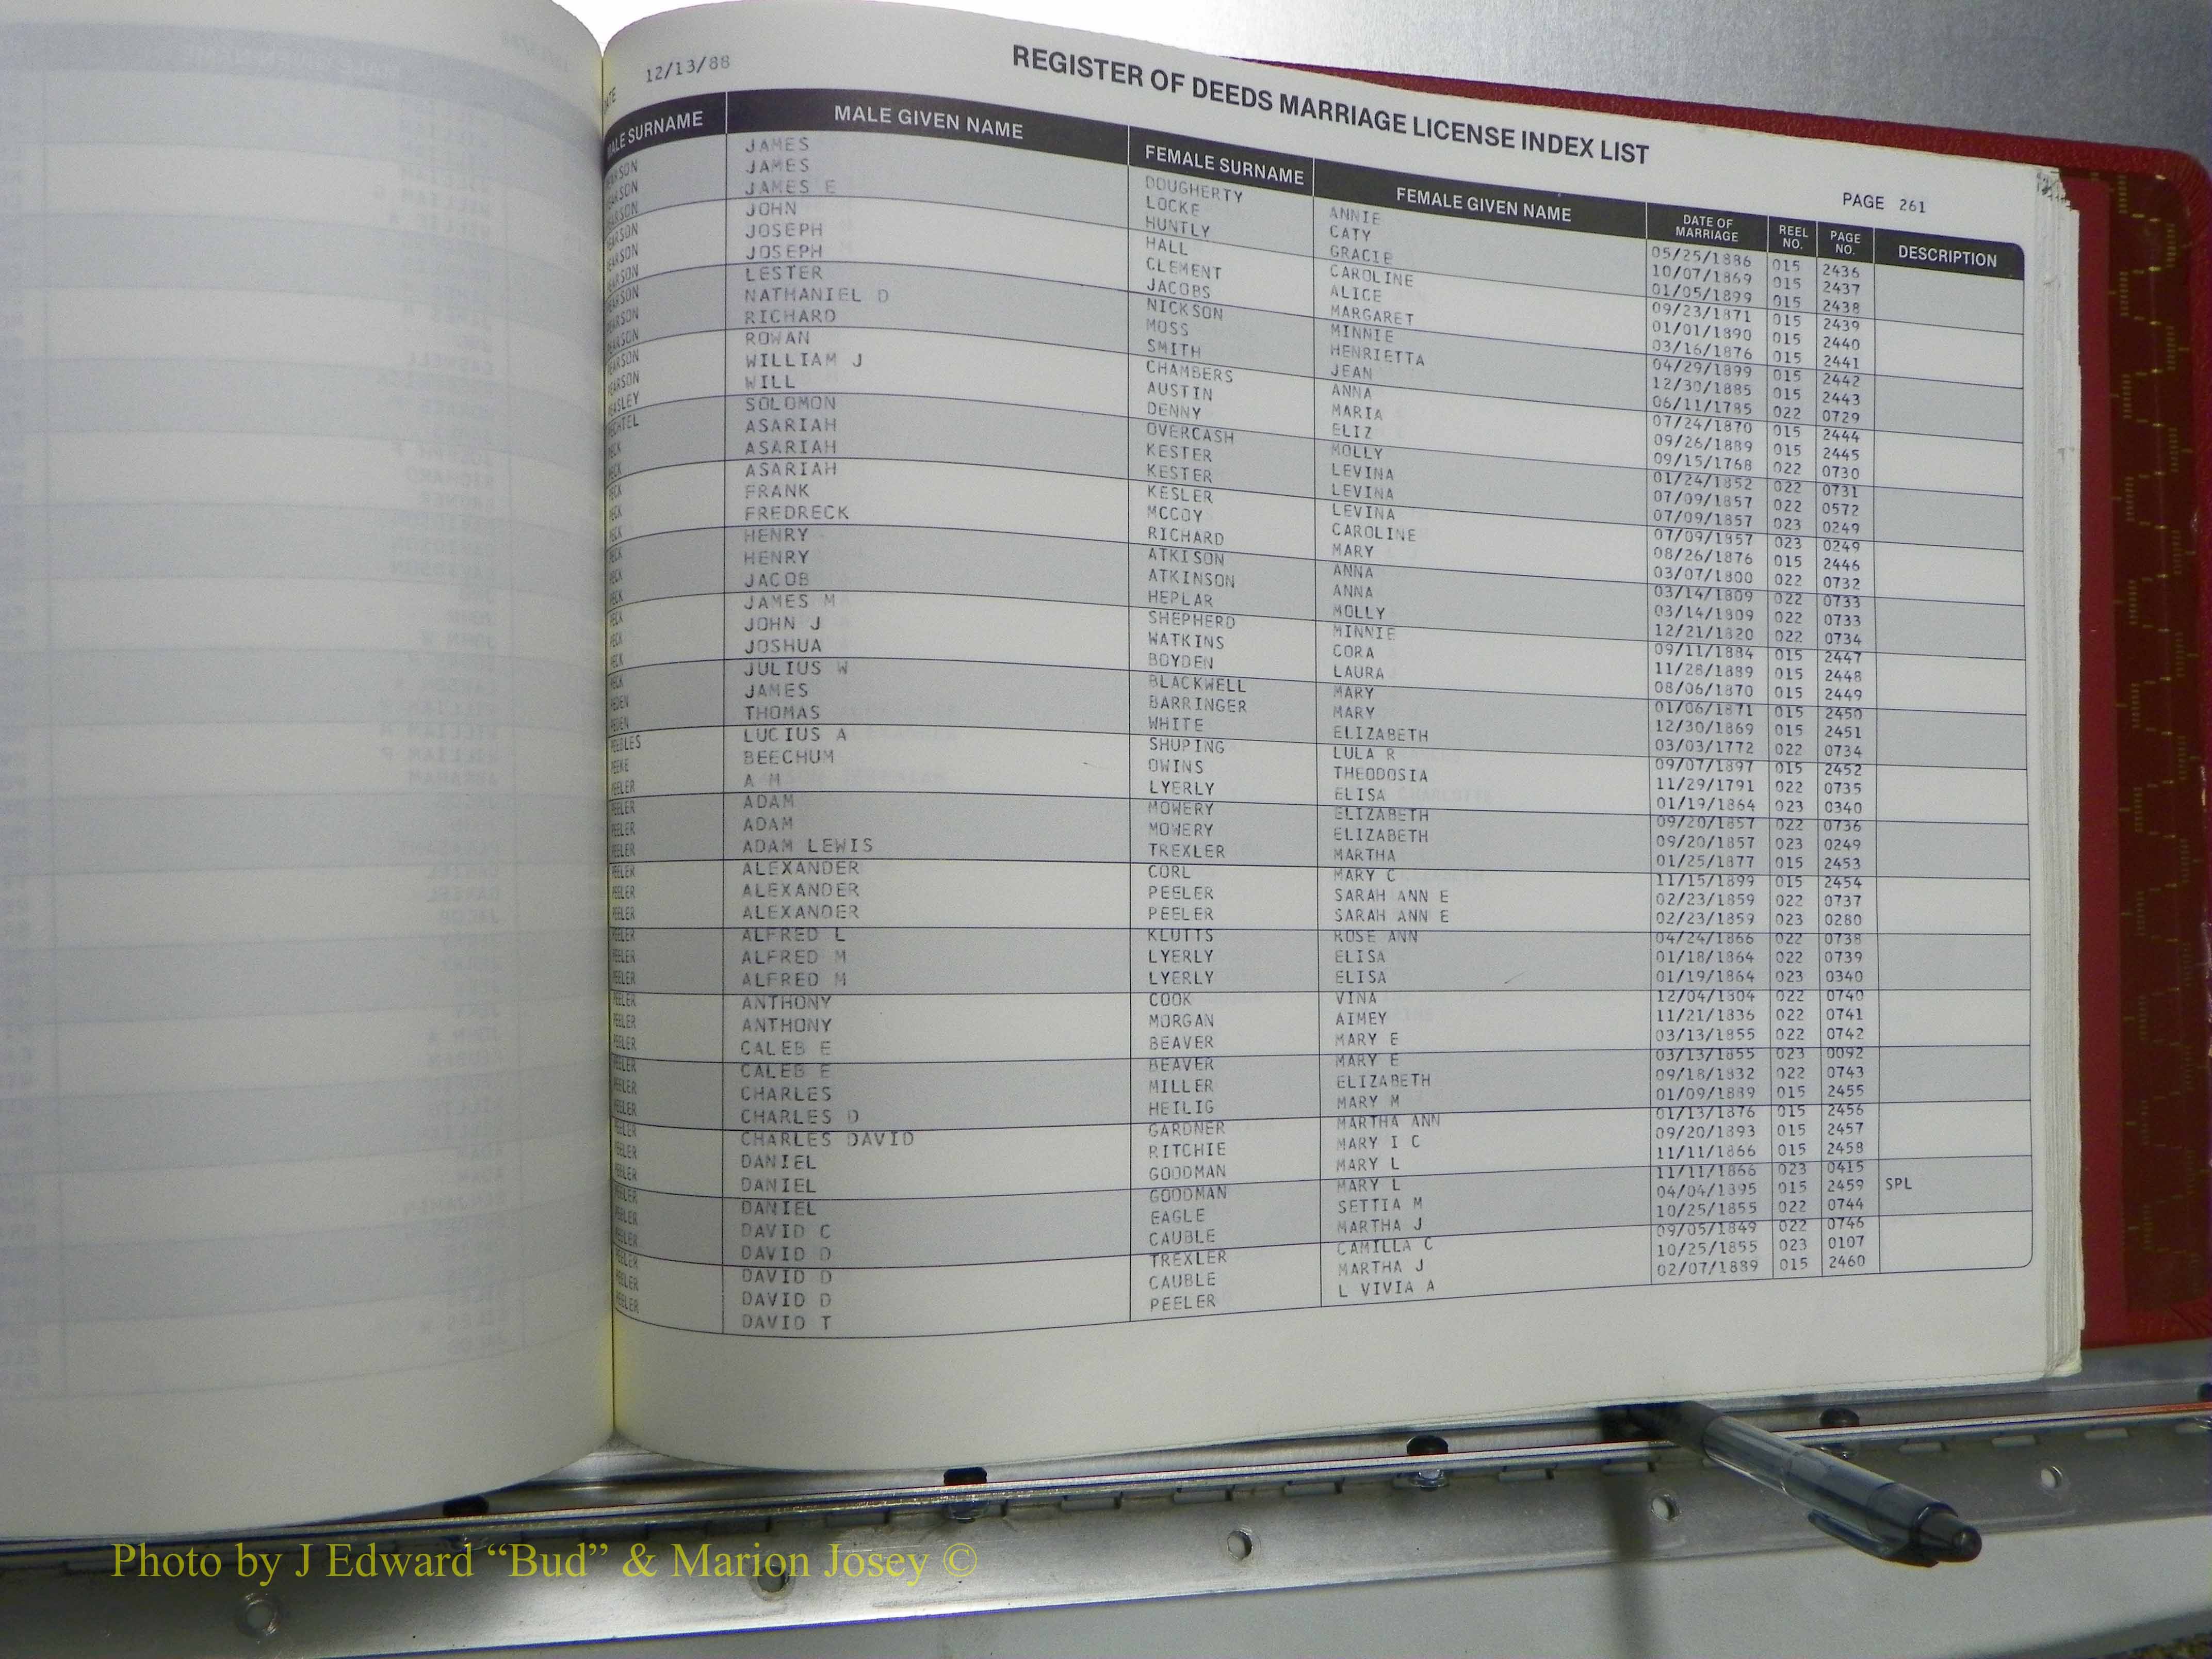 DATE 12/13/88
REGISTER OF DEEDS MARRIAGE LICENSE INDEX LIST
PAGE 261
MALE SURNAME MALE GIVEN NAME FEMALE SURNAME FEMALE GIVEN NAME DATE OF MARRIAGE REEL NO. PAGE NO. DESCRIPTION
PEARSON JAMES DOUGHERTY ANNIE 05/25/1886 015 2436
PEARSON JAMES LOCKE CATY 10/07/1869 015 2437
PEARSON JAMES E HUNTLY GRACIE 01/05/1899 015 2438
PEARSON JOHN HALL CAROLINE 09/23/1871 015 2439
PEARSON JOSEPH CLEMENT ALICE 01/01/1890 015 2440
PEARSON JOSEPH JACOBS MARGARET 03/16/1876 015 2441
PEARSON LESTER NICKSON MINNIE 04/29/1899 015 2442
PEARSON NATHANIEL D MOSS HENRIETTA 12/30/1885 015 2443
PEARSON RICHARD SMITH JEAN 06/11/1785 022 0729
PEARSON ROWAN CHAMBERS ANNA 07/24/1870 015 2444
PEARSON WILLIAM J AUSTIN MARIA 09/26/1889 015 2445
PEASLEY WILL DENNY ELIZ 09/15/1768 022 0730
PECHTEL SOLOMON OVERCASH MOLLY 01/24/1852 022 0731
PECK ASARIAH KESTER LEVINA 07/09/1857 022 0572
PECK ASARIAH KESTER LEVINA 07/09/1857 023 0249
PECK ASARIAH KESLER LEVINA 07/09/1857 023 0249
PECK FRANK MCCOY CAROLINE 08/26/1876 015 2446
PECK FREDRECK RICHARD MARY 03/07/1800 022 0732
PECK HENRY ATKISON ANNA 03/14/1809 022 0733
PECK HENRY ATKINSON ANNA 03/14/1809 022 0733
PECK JACOB HEPLAR MOLLY 12/21/1820 022 0734
PECK JAMES M SHEPHERD MINNIE 09/11/1884 015 2447
PECK JOHN J WATKINS CORA 11/28/1889 015 2448
PECK JOSHUA BOYDEN LAURA 08/06/1870 015 2449
PECK JULIUS W BLACKWELL MARY 01/06/1871 015 2450
PEDEN JAMES BARRINGER MARY 12/30/1869 015 2451
PEDEN THOMAS WHITE ELIZABETH 03/03/1772 022 0734
PEEBLES LUCIUS A SHUPING LULA R 09/07/1897 015 2452
PEEKE BEECHUM OWINS THEODOSIA 11/29/1791 022 0735
PEELER A M LYERLY ELISA 01/19/1864 023 0340
PEELER ADAM MOWERY ELIZABETH 09/20/1857 022 0736
PEELER ADAM MOWERY ELIZABETH 09/20/1857 023 0249
PEELER ADAM LEWIS TREXLER MARTHA 01/25/1877 015 2453
PEELER ALEXANDER CORL MARY C 11/15/1899 015 2454
PEELER ALEXANDER PEELER SARAH ANN E 02/23/1859 022 0737
PEELER ALEXANDER PEELER SARAH ANN E 02/23/1859 023 0280
PEELER ALFRED L KLUTTS ROSE ANN 04/24/1866 022 0738
PEELER ALFRED M LYERLY ELISA 01/18/1864 022 0739
PEELER ALFRED M LYERLY ELISA 01/19/1864 023 0340
PEELER ANTHONY COOK VINA 12/04/1804 022 0740
PEELER ANTHONY MORGAN AIMEY 11/21/1836 022 0741
PEELER CALEB E BEAVER MARY E 03/13/1855 022 0742
PEELER CALEB E BEAVER MARY E 03/13/1855 023 0092
PEELER CHARLES MILLER ELIZABETH 09/18/1832 022 0743
PEELER CHARLES D HEILIG MARY M 01/09/1889 015 2455
PEELER CHARLES DAVID GARDNER MARTHA ANN 01/13/1876 015 2456
PEELER DANIEL RITCHIE MARY I C 09/20/1893 015 2457
PEELER DANIEL GOODMAN MARY L 11/11/1866 015 2458
PEELER DANIEL GOODMAN MARY L 11/11/1866 023 0415
PEELER DAVID C EAGLE SETTIA M 04/04/1895 015 2459 SPL
PEELER DAVID D CAUBLE MARTHA J 10/25/1855 022 0744
PEELER DAVID D TREXLER CAMILLA C 09/05/1849 022 0746
PEELER DAVID D CAUBLE MARTHA J 10/25/1855 023 0107
PEELER DAVID T PEELER L VIVIA A 02/07/1889 015 2460
Photo by J Edward “Bud” & Marion Josey ©